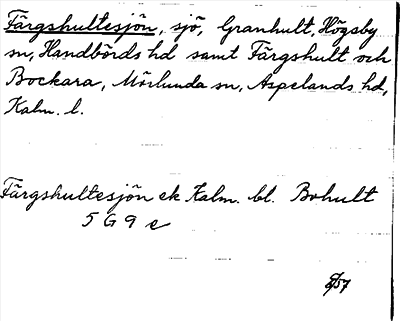 Färgshultesjön, sjö, Granhult, Högsby
sn, Handbörds hd samt Färgshult och
Bockara, Mörlunda sn, Aspelands hd,
Kalm. l.
Färgshultesjön ek Kalm. bl. Bohult
5 G 9 e